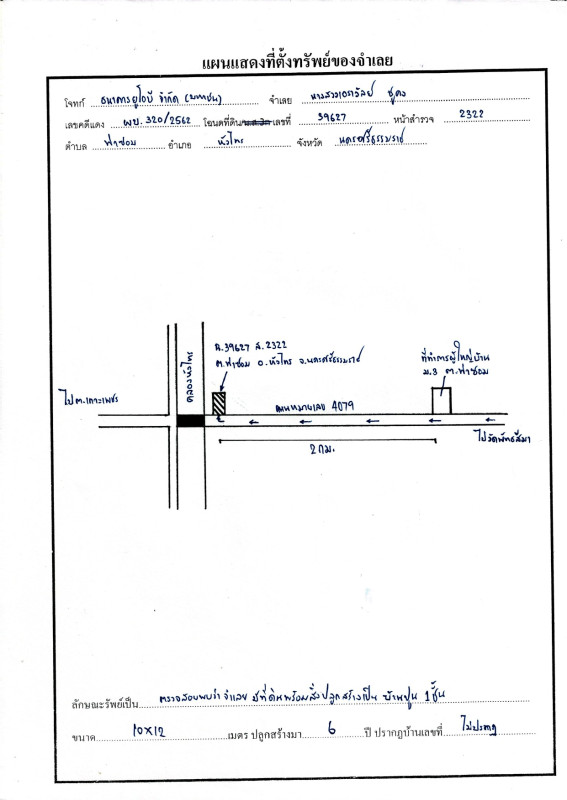 แผนแสดงที่ตั้งทรัพย์ของจำเลย
โจทก์ ธนาคารยูโอบี จำกัด (มหาชน) จำเลย นางสาว ชูคง
เลขคดีแดง ผบ. 320/2562 โฉนดที่ดิน/น.ส.3ก เลขที่ 39627 หน้าสำรวจ 2322
ตำบล ท่าซอม อำเภอ หัวไทร จังหวัด นครศรีธรรมราช
คลองหัวไทร
ฉ.39627 ส.2322
ต.ท่าซอม อ.หัวไทร จ.นครศรีธรรมราช
ที่ทำการผู้ใหญ่บ้าน
ม.3 ต.ท่าซอม
ไป ต.เกาะเพชร
ถนนหมายเลข 4079
ไปวัดพัทธสีมา
2 กม.
ลักษณะทรัพย์เป็น ตรวจสอบพบว่า จำเลย มีที่ดินพร้อมสิ่งปลูกสร้างเป็น บ้านปูน 1 ชั้น
ขนาด 10x12 เมตร ปลูกสร้างมา 6 ปี ปรากฏบ้านเลขที่ ไม่ปรากฏ